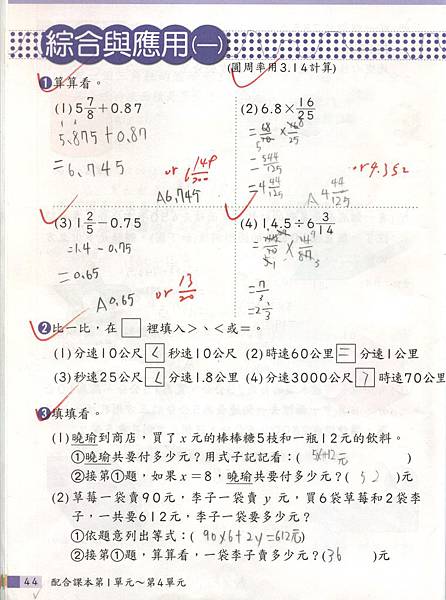 綜合與應用(一)
(圓周率用3.14計算)
1 算算看。
(1) 5 7/8 + 0.87
5.875 + 0.87
= 6.745
A 6.745
or 6 149/200
(2) 6.8 × 16/25
= 68/10 × 16/25
= 544/125
= 4 44/125
A 4 44/125
or 4.352
(3) 1 2/5 - 0.75
= 1.4 - 0.75
= 0.65
A 0.65
or 13/20
(4) 14.5 ÷ 6 3/14
= 7/3
= 2 1/3
2 比一比,在□裡填入>、<或=。
(1)分速10公尺 < 秒速10公尺 (2)時速60公里 = 分速1公里
(3)秒速25公尺 < 分速1.8公里 (4)分速3000公尺 > 時速70公里
3 填填看。
(1)曉瑜到商店,買了x元的棒棒糖5枝和一瓶12元的飲料。
①曉瑜共要付多少元?用式子記記看:( 5x+12元 )
②接第①題,如果x=8,曉瑜共要付多少元?( 52 )元
(2)草莓一袋賣90元,李子一袋賣y元,買6袋草莓和2袋李
子,一共要612元,李子一袋要多少元?
①依題意列出等式:( 90×6+2y=612元 )
②接第①題,算算看,一袋李子賣多少元?( 36 )元
44 配合課本第1單元~第4單元